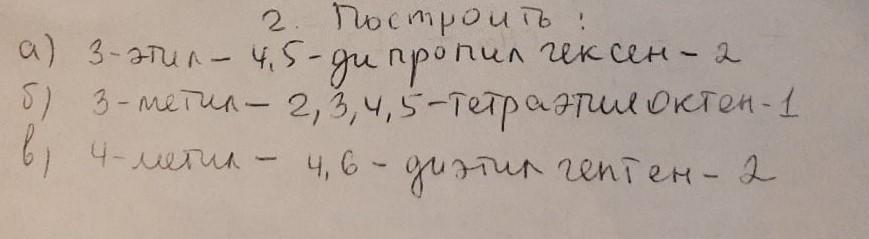 2. Построить:
а) 3-этил-4,5-дипропил гексен-2
б) 3-метил-2,3,4,5-тетраэтилоктен-1
в) 4-метил-4,6-диэтил гептен-2